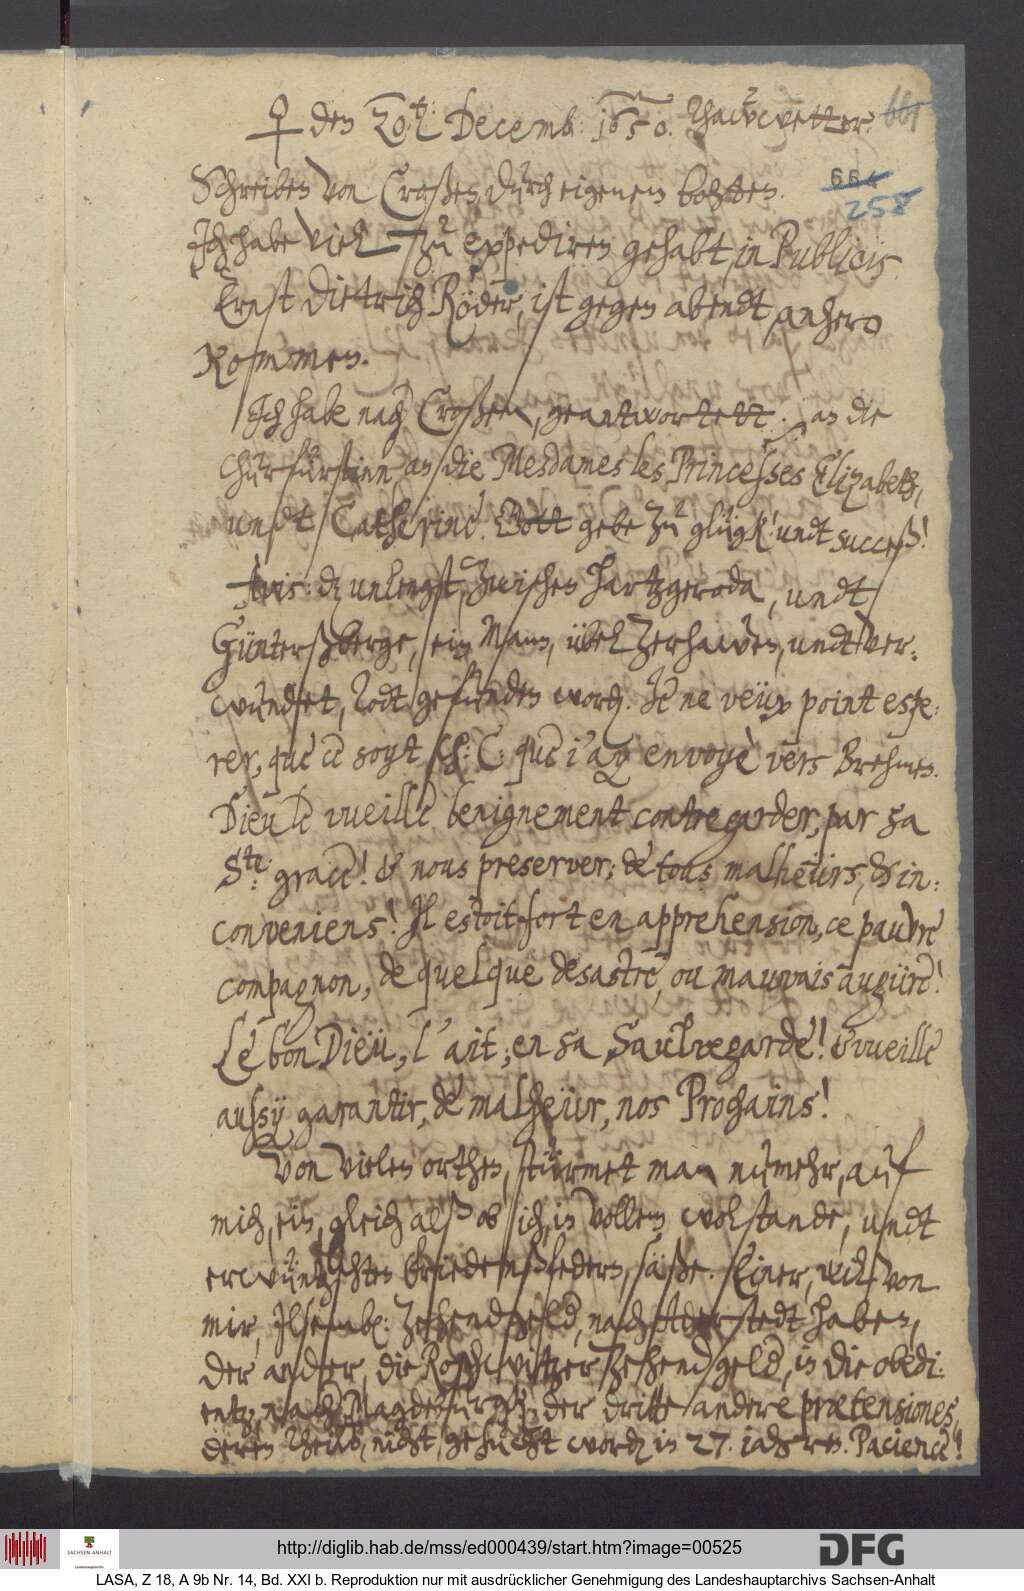 ♀ den 20t: Decemb: 1650. Thawwetter.
661
664
258
Schreiben von Croßen, durch eigenen bohtten.
Ich habe viel zu expediren gehabt, in Publicis.
Ernst Dietrich Röder, ist gegen abendt, anhero
kommen.
Ich habe nach Croßen, geantwortett: an die
Churfürstinn an die Mesdames les Princesses Elizabeth,
undt Catherine. Gott gebe zu glügk! undt succeß!
Avis: dz unlengst, zwischen Hartzgeroda, undt
Günterßberge, ein Mann, übel zerhawen, undt ver-
wundet, todt gefunden word. Je ne veüx point espe-
rer, que ce soyt, H: C: que i'ay envoyè vers Brehmen.
Dieu le vueille benignement contregarder, par sa
Ste: grace! & nous preserver; de tous malheurs, & in-
conveniens! Il estoit fort en apprehension, ce pauvre
compagnon, de quelque desastre, ou mauvais augüre!
Le bon Dieü, l'ait, en sa Saulvegarde! & vueille
aussy, garantir, de malheür, nos Prochains!
Von vielen orthen, sturmet man numehr, auf
mich, ein, gleich alß ob ich, in vollem wolstande, undt
erwüntzschten friedenßfedern, säße. Einer, will von
mir, Ilsemb: Zehendgeld, nach Adderstedt haben,
der ander, die Roschwitzer Zehendgeld, in die obedi-
entz, nach Magdeburgk, der dritte andere prætensiones,
deren theilß, nicht, gesucht word in 27. iahren. Pacience!
http://diglib.hab.de/mss/ed000439/start.htm?image=00525
DFG
SACHSEN-ANHALT
LASA, Z 18, A 9b Nr. 14, Bd. XXI b. Reproduktion nur mit ausdrücklicher Genehmigung des Landeshauptarchivs Sachsen-Anhalt